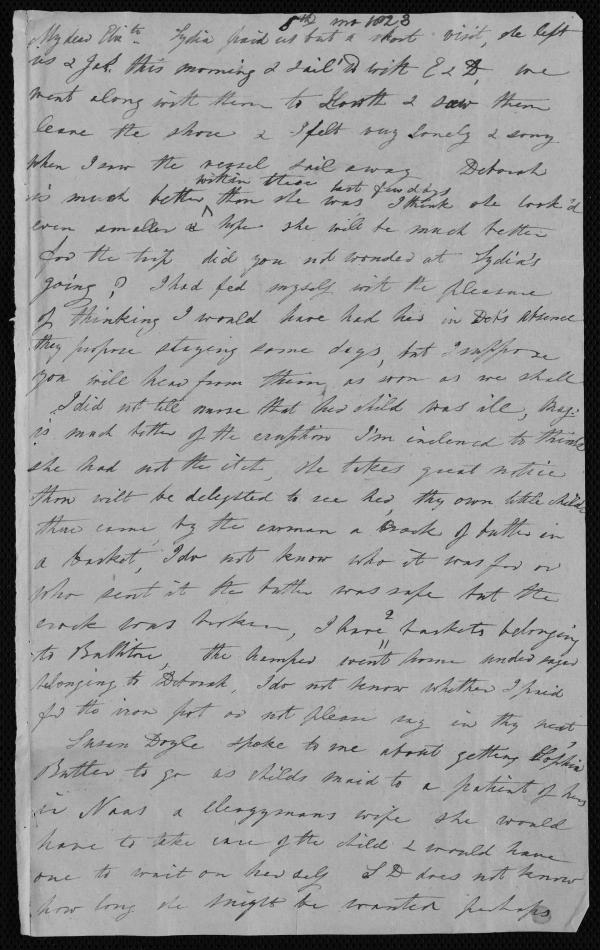 8th mo 1823
My dear Elizth Lydia paid us but a short visit, she left
us & Jas. this morning & sail'd with E & D, we
went along with them to Howth & saw them
leave the shore & I felt very lonely & sorry
when I saw the vessel sail away Deborah
within these last few days
is much better than she was I think she look'd
even smaller & hope she will be much better
for the trip did you not wonder at Lydia's
going? I had fed myself with the pleasure
of thinking I would have had her in Deb's absence
they propose staying some days, but I suppose
you will hear from them as soon as we shall
I did not tell nurse that her child was ill, Marg:
is much better of the eruption I'm inclened to think
she had not the itch, she takes great notice
thou wilt be delighted to see her, thy own little child
there came by the carman a crock of butter in
a basket, I do not know who it was for or
who sent it the butter was safe but the
crock was broken, I have 2 baskets belonging
to Ballitore, the hamper went home under sugar
belonging to Deborah, I do not know whether I paid
for the iron pot or not please say in thy next
Susan Doyle spoke to me about getting Sophia
Butler to go as childs maid to a patient of hers
in Naas a Clergymans wife she would
have to take care of the child & would have
one to wait on herself S D does not know
how long she might be wanted perhaps